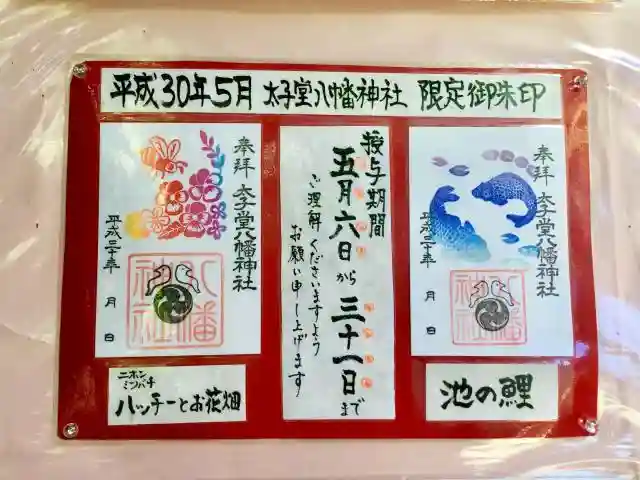 平成30年5月 太子堂八幡神社 限定御朱印
奉拝 太子堂八幡神社
平成三十年 月 日
八幡
神社
ニホン
ミツバチ
ハッチーとお花畑
授与期間
五月六日から三十一日まで
ご理解くださいますよう
お願い申し上げます
奉拝 太子堂八幡神社
平成三十年 月 日
八幡
神社
池の鯉